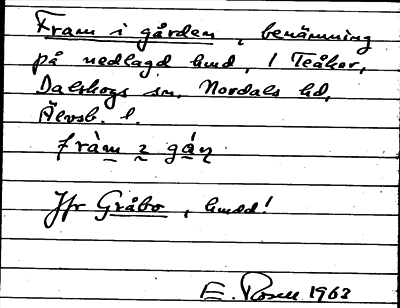 Fram i gården, benämning
på nedlagd hmd, i Teåker,
Dalskogs sn. Nordals hd,
Älvsb. l.
fràm i gán
Jfr Gråbo, hmd!
E. Rosell 1963